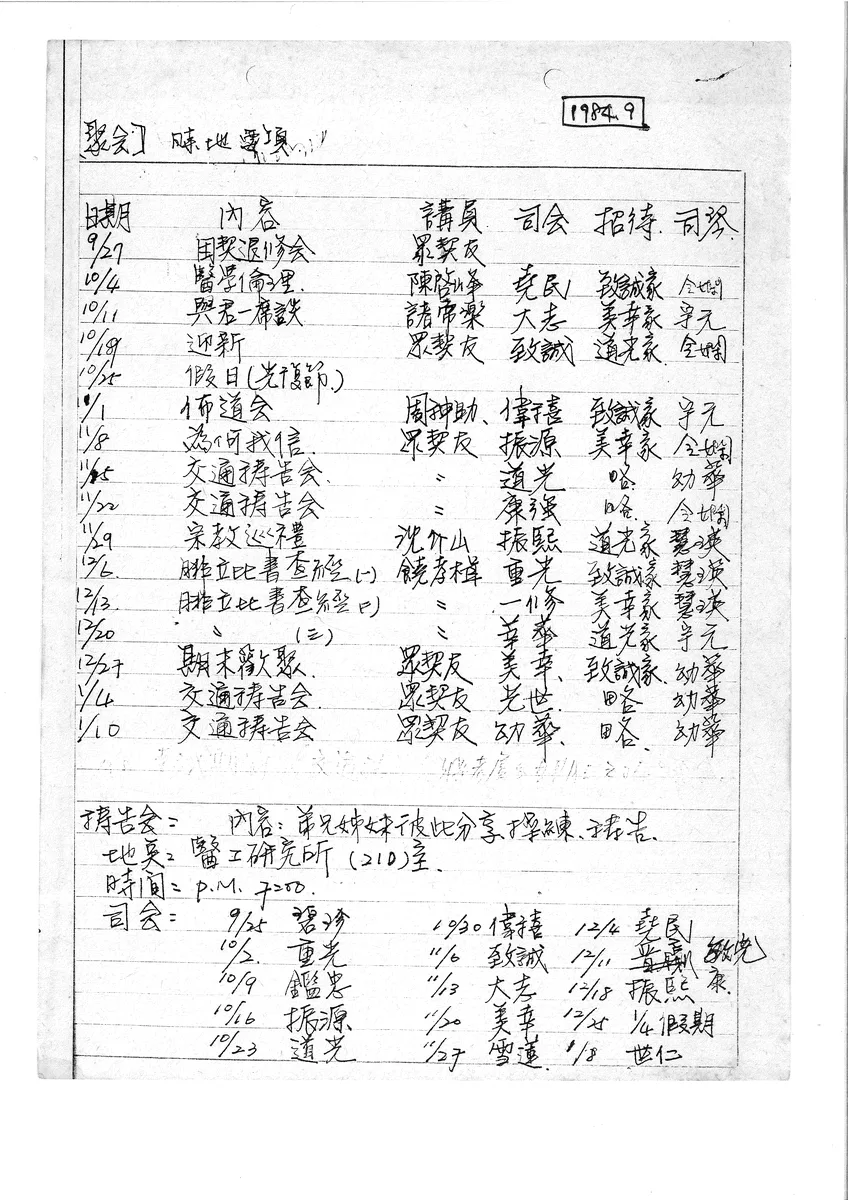 1984.9
[聚会] 時地事項
日期 內容 講員 司会 招待 司琴
9/27 团契退修会 眾契友
10/4 醫學倫理 陳啓峰 堯民 致誠家 令嫻
10/11 與君一席談 諸常樂 大志 美幸家 守元
10/18 迎新 眾契友 致誠 道光家 令嫻
10/25 假日(光復節)
1/1 佈道会 周神助 偉禧 致誠家 守元
11/8 為何我信 眾契友 振源 美幸家 令嫻
11/15 交通禱告会 〃 道光 略 幼華
11/22 交通禱告会 〃 康强 略 令嫻
11/29 宗教巡禮 沈介山 振熙 道光家 慧瑛
12/6 腓立比書查經(一) 饒孝楫 重光 致誠家 慧瑛
12/13 腓立比書查經(二) 〃 一修 美幸家 慧瑛
12/20 〃 (三) 〃 幸華 道光家 守元
12/27 期末歡聚 眾契友 美幸 致誠家 幼華
1/4 交通禱告会 眾契友 光世 略 幼華
1/10 交通禱告会 眾契友 幼華 略 幼華
禱告会: 內容: 弟兄姊妹彼此分享、操練、禱告
地奌: 醫工研究所 (210)室
時间: P.M. 7:00
司会: 9/25 碧珍 10/30 偉禧 12/4 堯民
10/2 重光 11/6 致誠 12/11
10/9 鑑忠 11/13 大志 12/18 振熙 康
10/16 振源 11/20 美幸 12/25 1/4 假期
10/23 道光 11/27 雪蓮 1/8 世仁